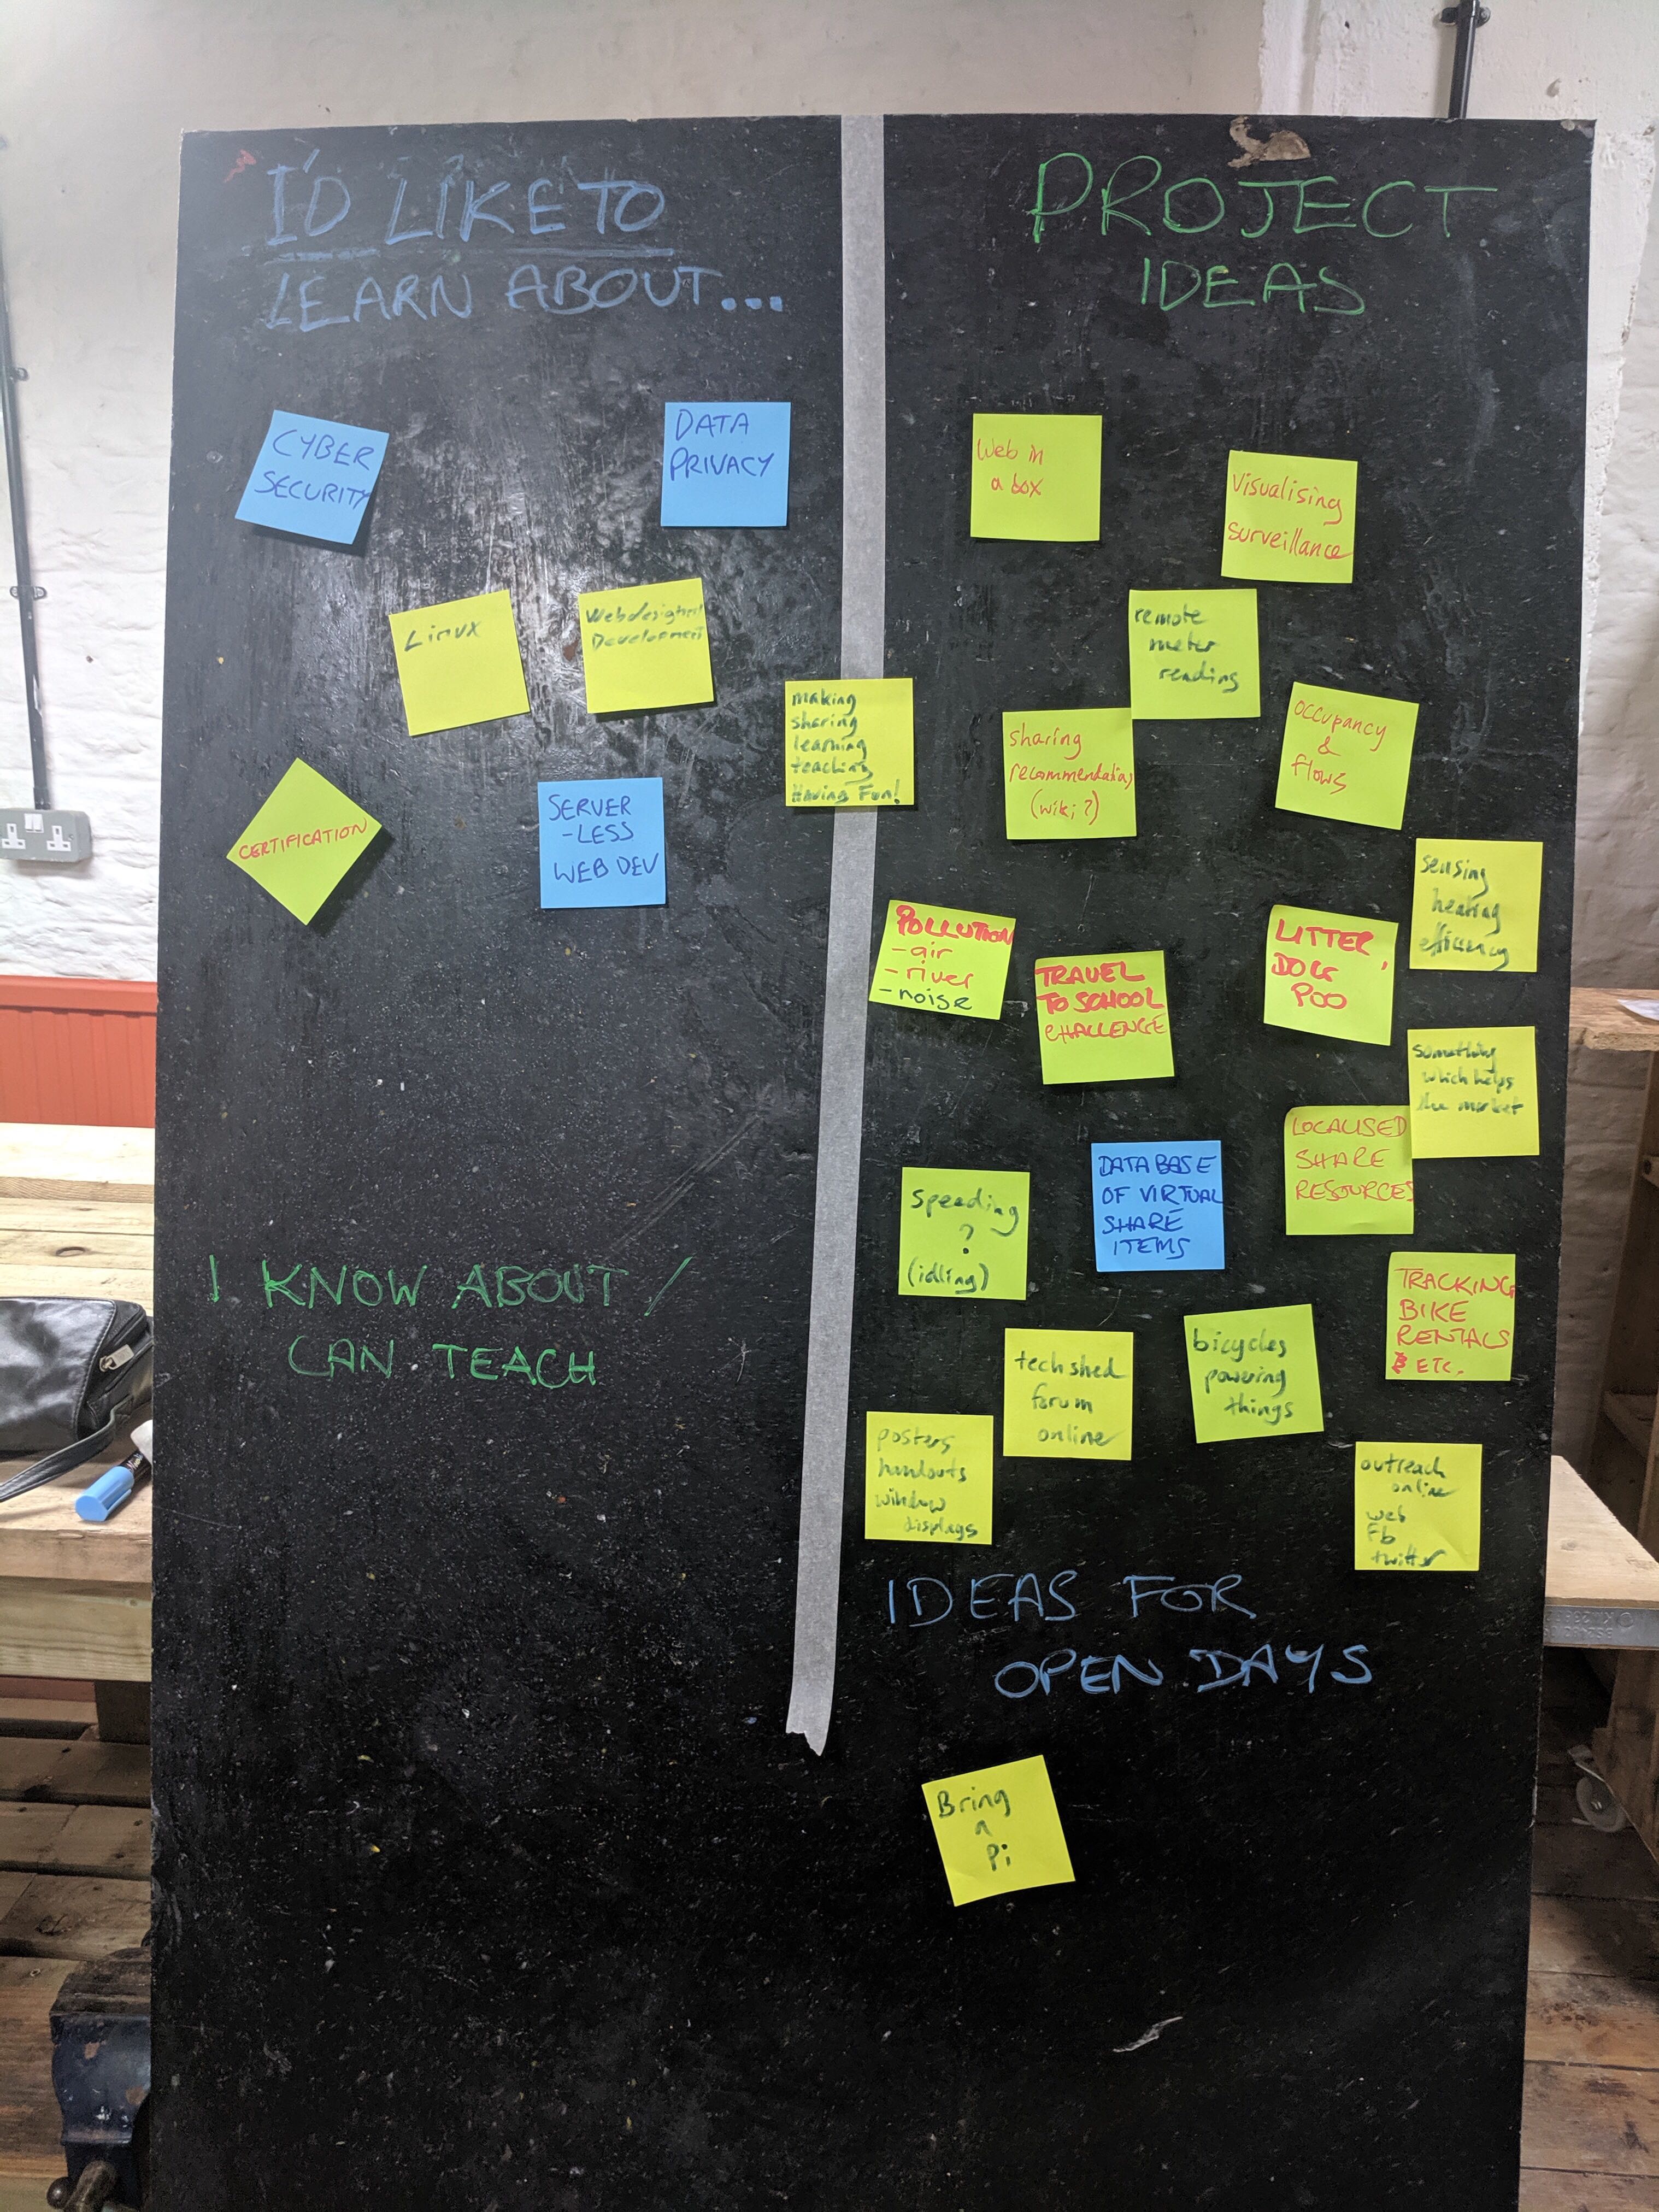 I'D LIKE TO
LEARN ABOUT...
CYBER
SECURITY
DATA
PRIVACY
Linux
Development
CERTIFICATION
SERVER
-LESS
WEB DEV
making
sharing
learning
teaching
Having Fun!
I KNOW ABOUT /
CAN TEACH
PROJECT
IDEAS
Web in
a box
Visualising
surveillance
remote
meter
reading
sharing
recommendations
(wiki?)
occupancy
&
flows
sensing
heating
efficiency
POLLUTION
-air
-river
-noise
TRAVEL
TO SCHOOL
CHALLENGE
LITTER,
DOG
POO
something
which helps
the market
LOCALISED
SHARE
RESOURCES
speeding
?
(idling)
DATABASE
OF VIRTUAL
SHARE
ITEMS
TRACKING
BIKE
RENTALS
ETC.
tech shed
forum
online
bicycles
powering
things
posters
handouts
window
displays
outreach
online
web
Fb
twitter
IDEAS FOR
OPEN DAYS
Bring
a
Pi